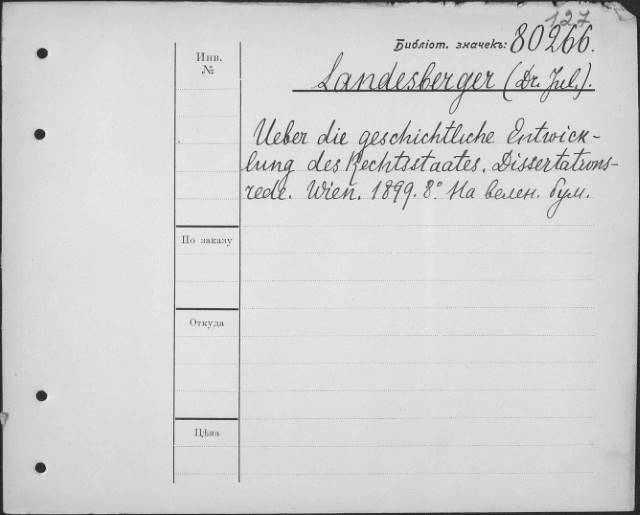 127
Библіот. значекъ: 80266.
Инв. №
Landesberger (Dr. Jul.).
Ueber die geschichtliche Entwick-
lung des Rechtsstaates. Dissertations-
rede. Wien. 1899. 8° На велен. бум.
По заказу
Откуда
Цѣна